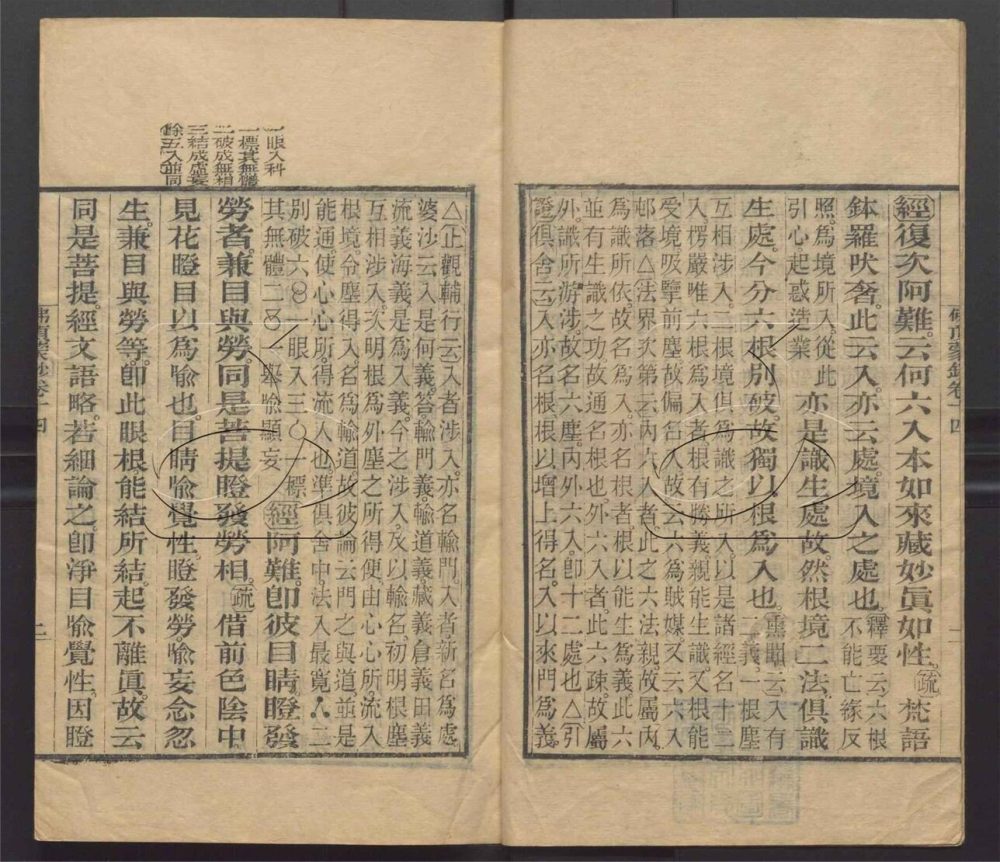 經復次阿難。云何六入本如來藏妙眞如性。疏梵語
鉢羅吠奢。此云入。亦云處。境入之處也。釋要云六根不能亡緣反
照。爲境所入。從此引心起惑造業亦是識生處故。然根境二法。俱識
生處。今分六根別破。故獨以根爲入也。熏聞云入有二義。一根塵
互相涉入。二根境俱爲識之所入。以是諸經名十二
入。楞嚴唯六入者。根有勝義。親能生識。又根能
受境吸擥前塵。故偏名入。故云六爲賊媒。又云六入
邨落。△法界次第云。內六入者。此之六法親。故屬內
爲識所依。故名入。亦名根者。根以能生爲義。此六
並有生識之功。故通名根也。外六入者。此六疎。故屬
外。識所游涉。故名六塵。丙外六入。卽十二處也。△引
證俱舍云。入亦名根。根以增上得名。入以來門爲義。
佛頂蒙鈔卷十四
△止觀輔行云。入者涉入。亦名輸門。入者新名爲處。
婆沙云。入是何義。答。輸門義。輸道義。藏義。倉義。田義
流義。海義。是爲入義。今之涉入。及以輸名。初明根塵
互相涉入。次明根爲外塵之所得便。由心心所。流入
根境。令塵得入。名爲輸道。故彼論云。門之與道。並是
能通。使心心所。得流入也。準俱舍中。法入最寬。二
別破六。一眼入三。一標
其無體二。一舉喻顯妄經阿難。卽彼目睛瞪發
勞者兼目與勞。同是菩提瞪發勞相。疏借前色陰中
見花瞪目以爲喻也。目睛喻覺性。瞪發勞喻妄念忽
生。兼目與勞等。卽此眼根能結所結。起不離眞。故云
同是菩提。經文語略。若細論之。卽淨目喻覺性。因瞪
一眼入科
一標其無體
二破成無相
三結成虛妄
餘五入並同